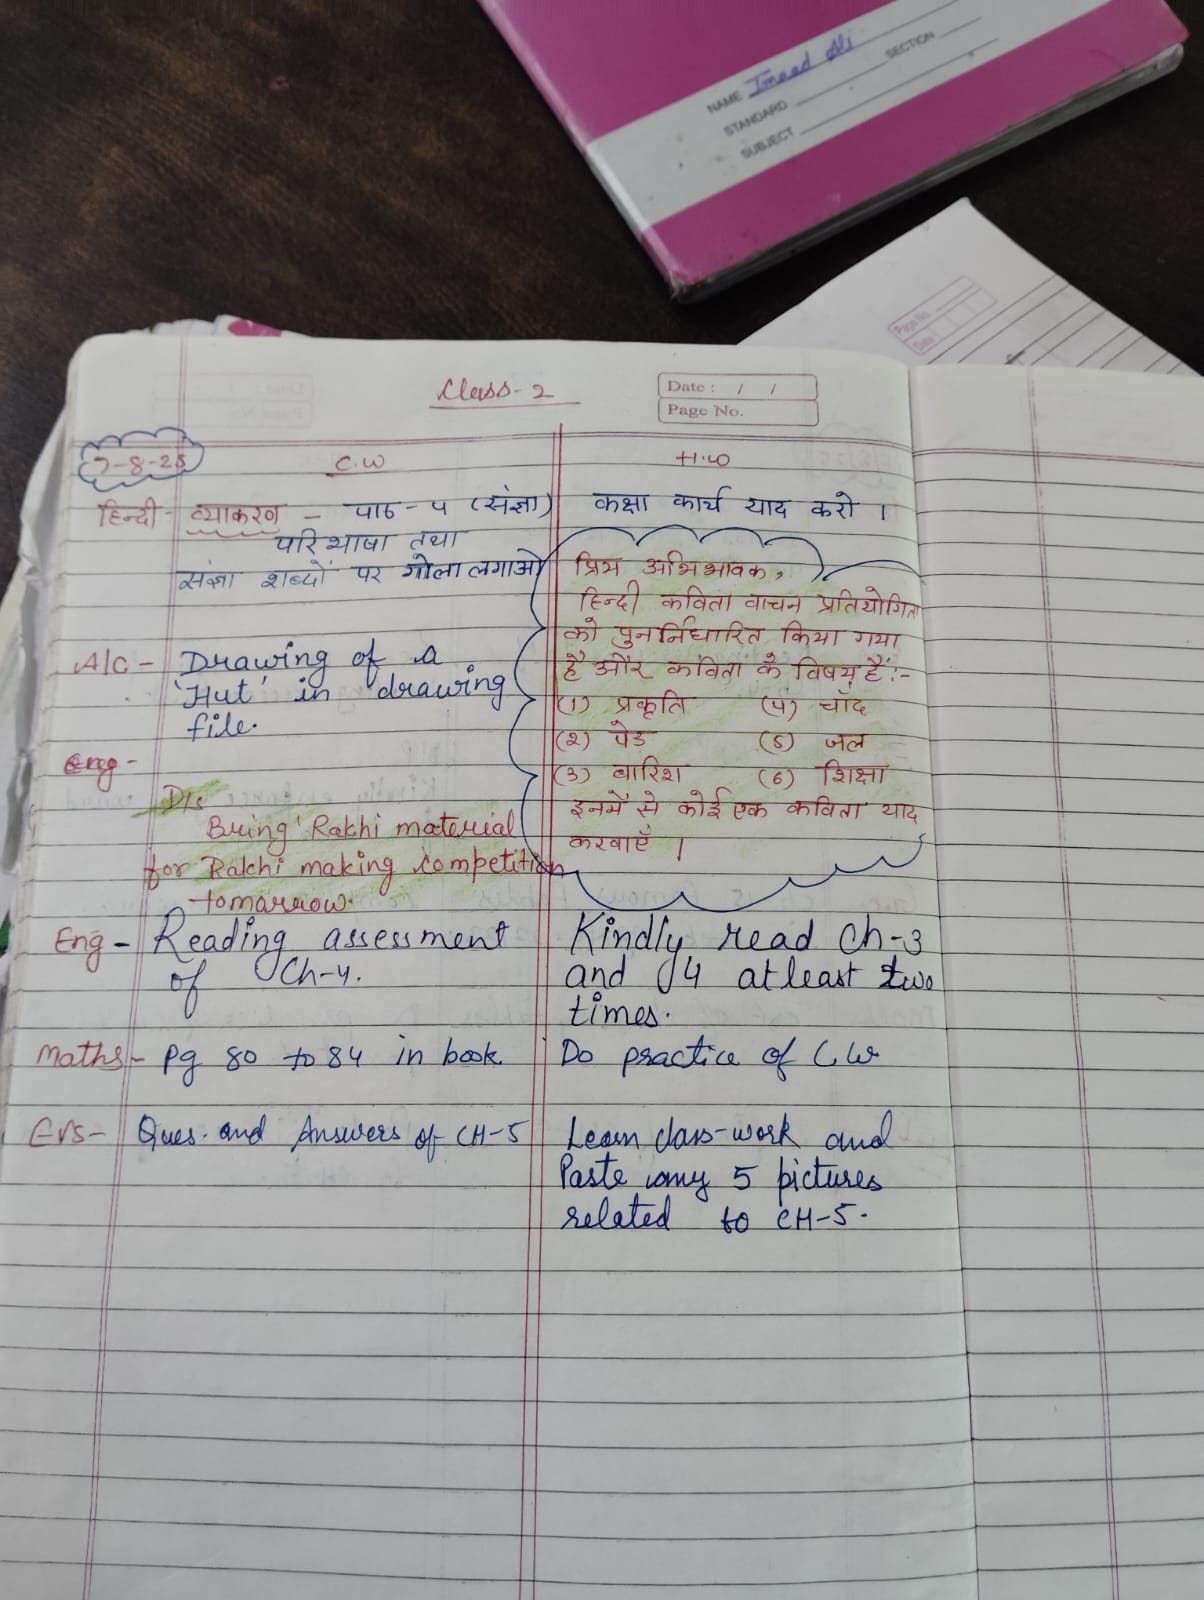 NAME Imaad Ali
SECTION
STANDARD
SUBJECT
Page No.
Date
Class-2
Date : / /
Page No.
7-8-25
C.W
H.W
हिन्दी- व्याकरण - पाठ-४ (संज्ञा)
परिभाषा तथा
संज्ञा शब्दों पर गोला लगाओ
कक्षा कार्य याद करो ।
प्रिय अभिभावक,
हिन्दी कविता वाचन प्रतियोगिता
को पुनर्निधारित किया गया
है और कविता के विषय हैं:-
(१) प्रकृति (४) चाँद
(२) पेड़ (५) जल
(३) बारिश (६) शिक्षा
इनमें से कोई एक कविता याद
करवाएँ ।
A/C - Drawing of a
'Hut' in drawing
file.
Eng-
D/s
Bring Rakhi material
for Rakhi making competition
tomarrow.
Eng - Reading assessment
of Ch-4.
Kindly read Ch-3
and 4 at least two
times.
Maths - Pg 80 to 84 in book
Do practice of C.W
Evs- Ques. and Answers of CH-5
Learn class-work and
Paste any 5 pictures
related to CH-5.